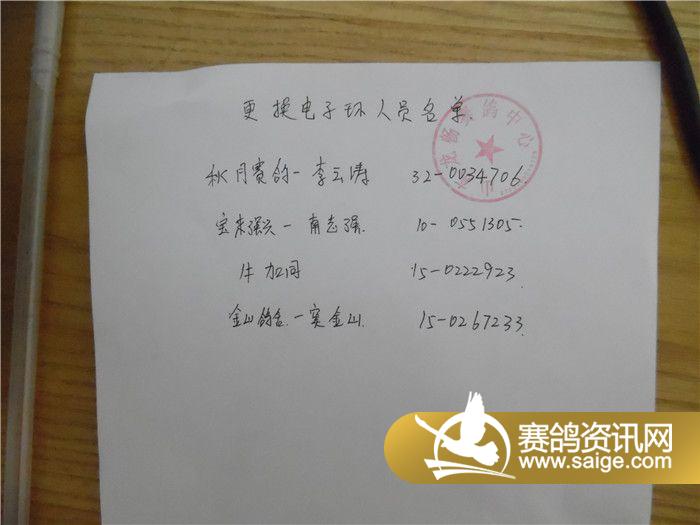 更换电子环人员名单.
秋月赛鸽-李云涛 32-0034706.
宝来强兴-南志强. 10-0551305.
牛加同 15-0222923.
金山鸽舍.-窦金山. 15-0267233.
赛鸽中心
赛鸽资讯网
www.saige.com